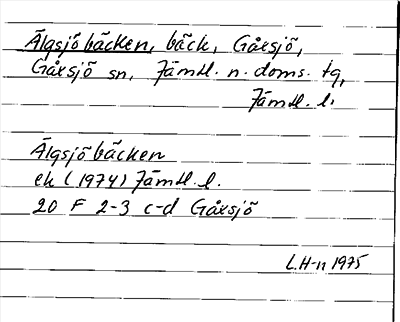 Älgsjöbäcken, bäck, Gåxsjö,
Gåxsjö sn, Jämtl. n. doms. tg,
Jämtl. l.
Älgsjöbäcken
ek (1974) Jämtl. l.
20 F 2-3 c-d Gåxsjö
L.H-n 1975